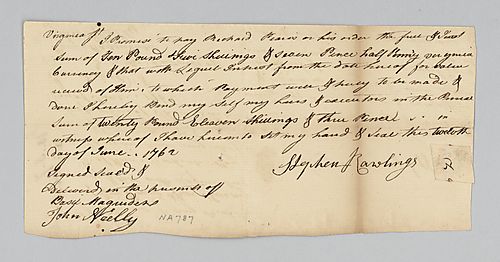 Virginia Ss. I Promise to pay Richard or his order the full & Just
Sum of Ten Pound & five Shillings & Seven Pence half Penny
Currency & that with Leguel Interest from the date hereof for value
recued of Him: to which Payment well & truly to be made &
done I hereby Bind my Self my heirs & executors in the Penal
Sum of twenty Pound Eleaven Shillings & three Pence in
witness whereof I have hereunto Set my hand & Seal this twelvth
day of June.. 1762
Signed Seald &
Delivered in the presents of
Stephen Rawlings
Magruder
John Kelly
NA 787